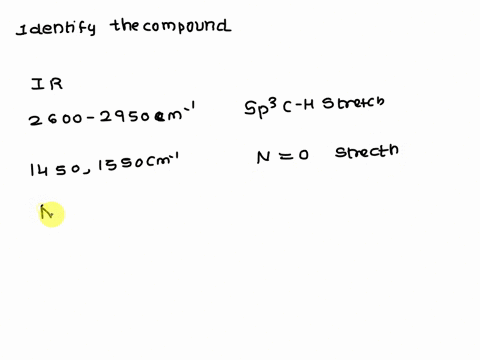 Identify the compound
IR
2600-2950 cm⁻¹ Sp³ C-H Stretch
1450, 1550 cm⁻¹ N=O Strecth